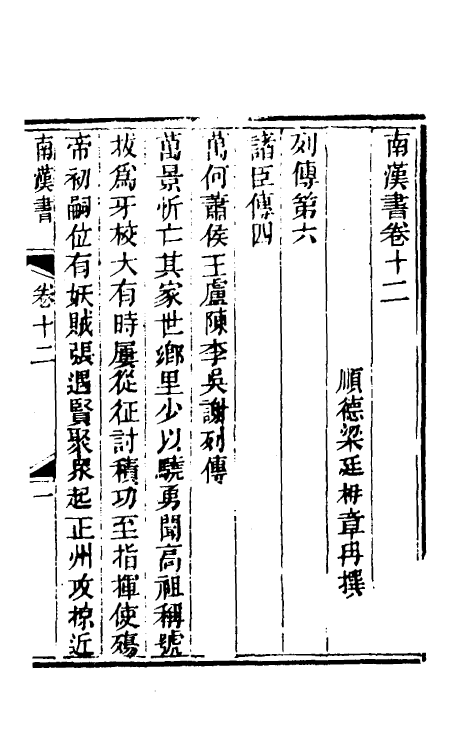 南漢書卷十二
順德梁廷枏章冉撰
列傳第六
諸臣傳四
萬何蕭侯王盧陳李吳謝列傳
萬景忻亡其家世鄉里少以驍勇聞高祖稱號
拔爲牙校大有時屢從征討積功至指揮使殤
帝初嗣位有妖賊張遇賢聚衆起正州攻掠近
南漢書 卷十二 一